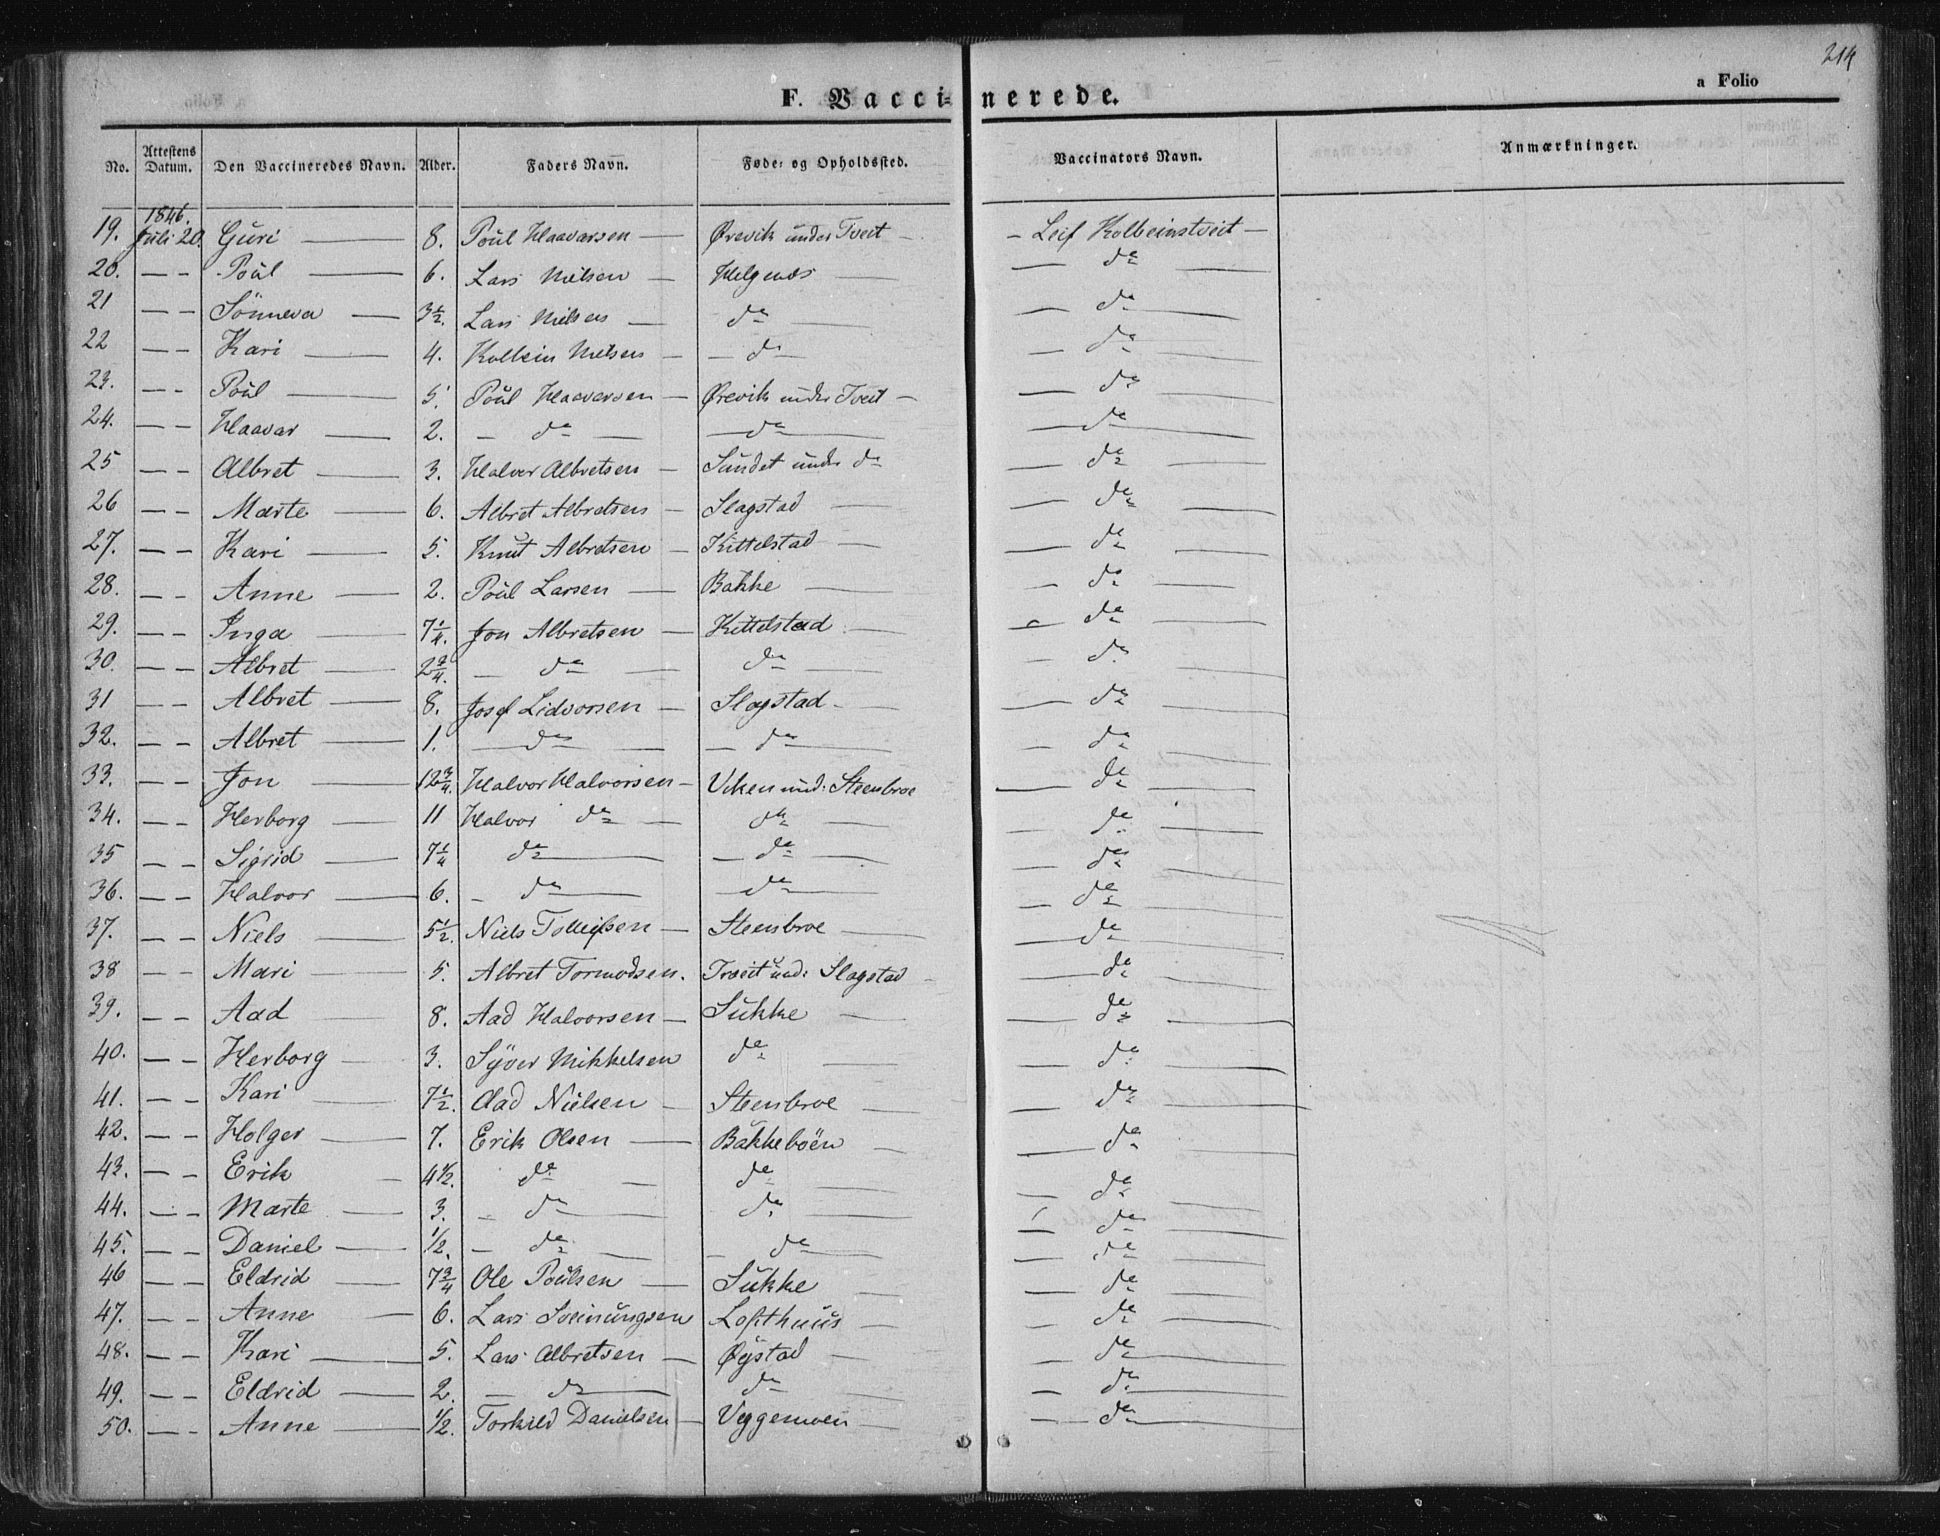 214
F. Vaccinerede.
a Folio
No. Attestens Datum. Den Vaccineredes Navn. Alder. Faders Navn. Føde- og Opholdssted. Vaccinators Navn. Anmærkninger.
1846.
19. Juli 20. Guri — 8. Poul Haavarsen — Ørevik under Tveit — Leif Kolbeinstveit —
20. — — Poul — 6. Lars Nielsen — Helgenæs — do
21 — — Sönneva — 3½. Lars Nielsen — do — do
22 — — Kari — 4. Kolbein Nielsen — do — do
23. — — Poul — 5. Poul Haavarsen — Ørevik under Tveit — do
24. — — Haavar — 2. — do — do — do
25 — — Albret — 3. Halvor Albretsen — Sundet under do — do
26 — — Marte — 6. Albret Albretsen — Slagstad — do
27. — — Kari — 5. Knut Albretsen — Kittelstad — do
28. — — Anne — 2. Poul Larsen — Bakke — do
29. — — Inga — 7¼. Jon Albretsen — Kittelstad — do
30. — — Albret — 2¾. — do — do — do
31 — — Albret — 8. Josef Lidvorsen — Slagstad — do
32. — — Albret — 1. — do — do — do
33. — — Jon — 12¾. Halvor Halvorsen — Viken und: Steenbroe — do
34. — — Herborg — 11 Halvor do — do — do
35 — — Sigrid — 7¼ do — do — do
36. — — Halvor — 6. — do — do — do
37. — — Niels — 5½. Niels Tollefsen — Steenbroe — do
38 — — Mari — 5. Albret Tormodsen. Tveit und: Slagstad — do
39. — — Aad — 8. Aad Halvorsen — Sukke — do
40. — — Herborg — 3. Syver Mikkelsen do — do
41. — — Kari — 7½. Aad Nielsen — Steenbroe — do
42. — — Holger — 7. Erik Olsen — Bakkeböen — do
43. — — Erik — 4½. do — do — do
44. — — Marte — 3. — do — do — do
45. — — Daniel — ½. — do — do — do
46 — — Eldrid — 7¾ Ole Poulsen — Sukke — do
47. — — Anne — 6. Lars Sveinungsen Lofthuus — do
48. — — Kari — 5. Lars Albretsen — Øystad — do
49. — — Eldrid — 2. — do — do — do
50. — — Anne — ½. Torkild Danielsen — Veggemoen — do